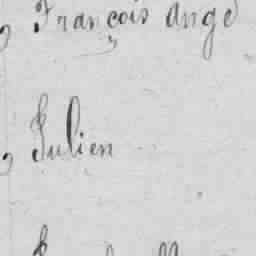 , François Ange
, Julien